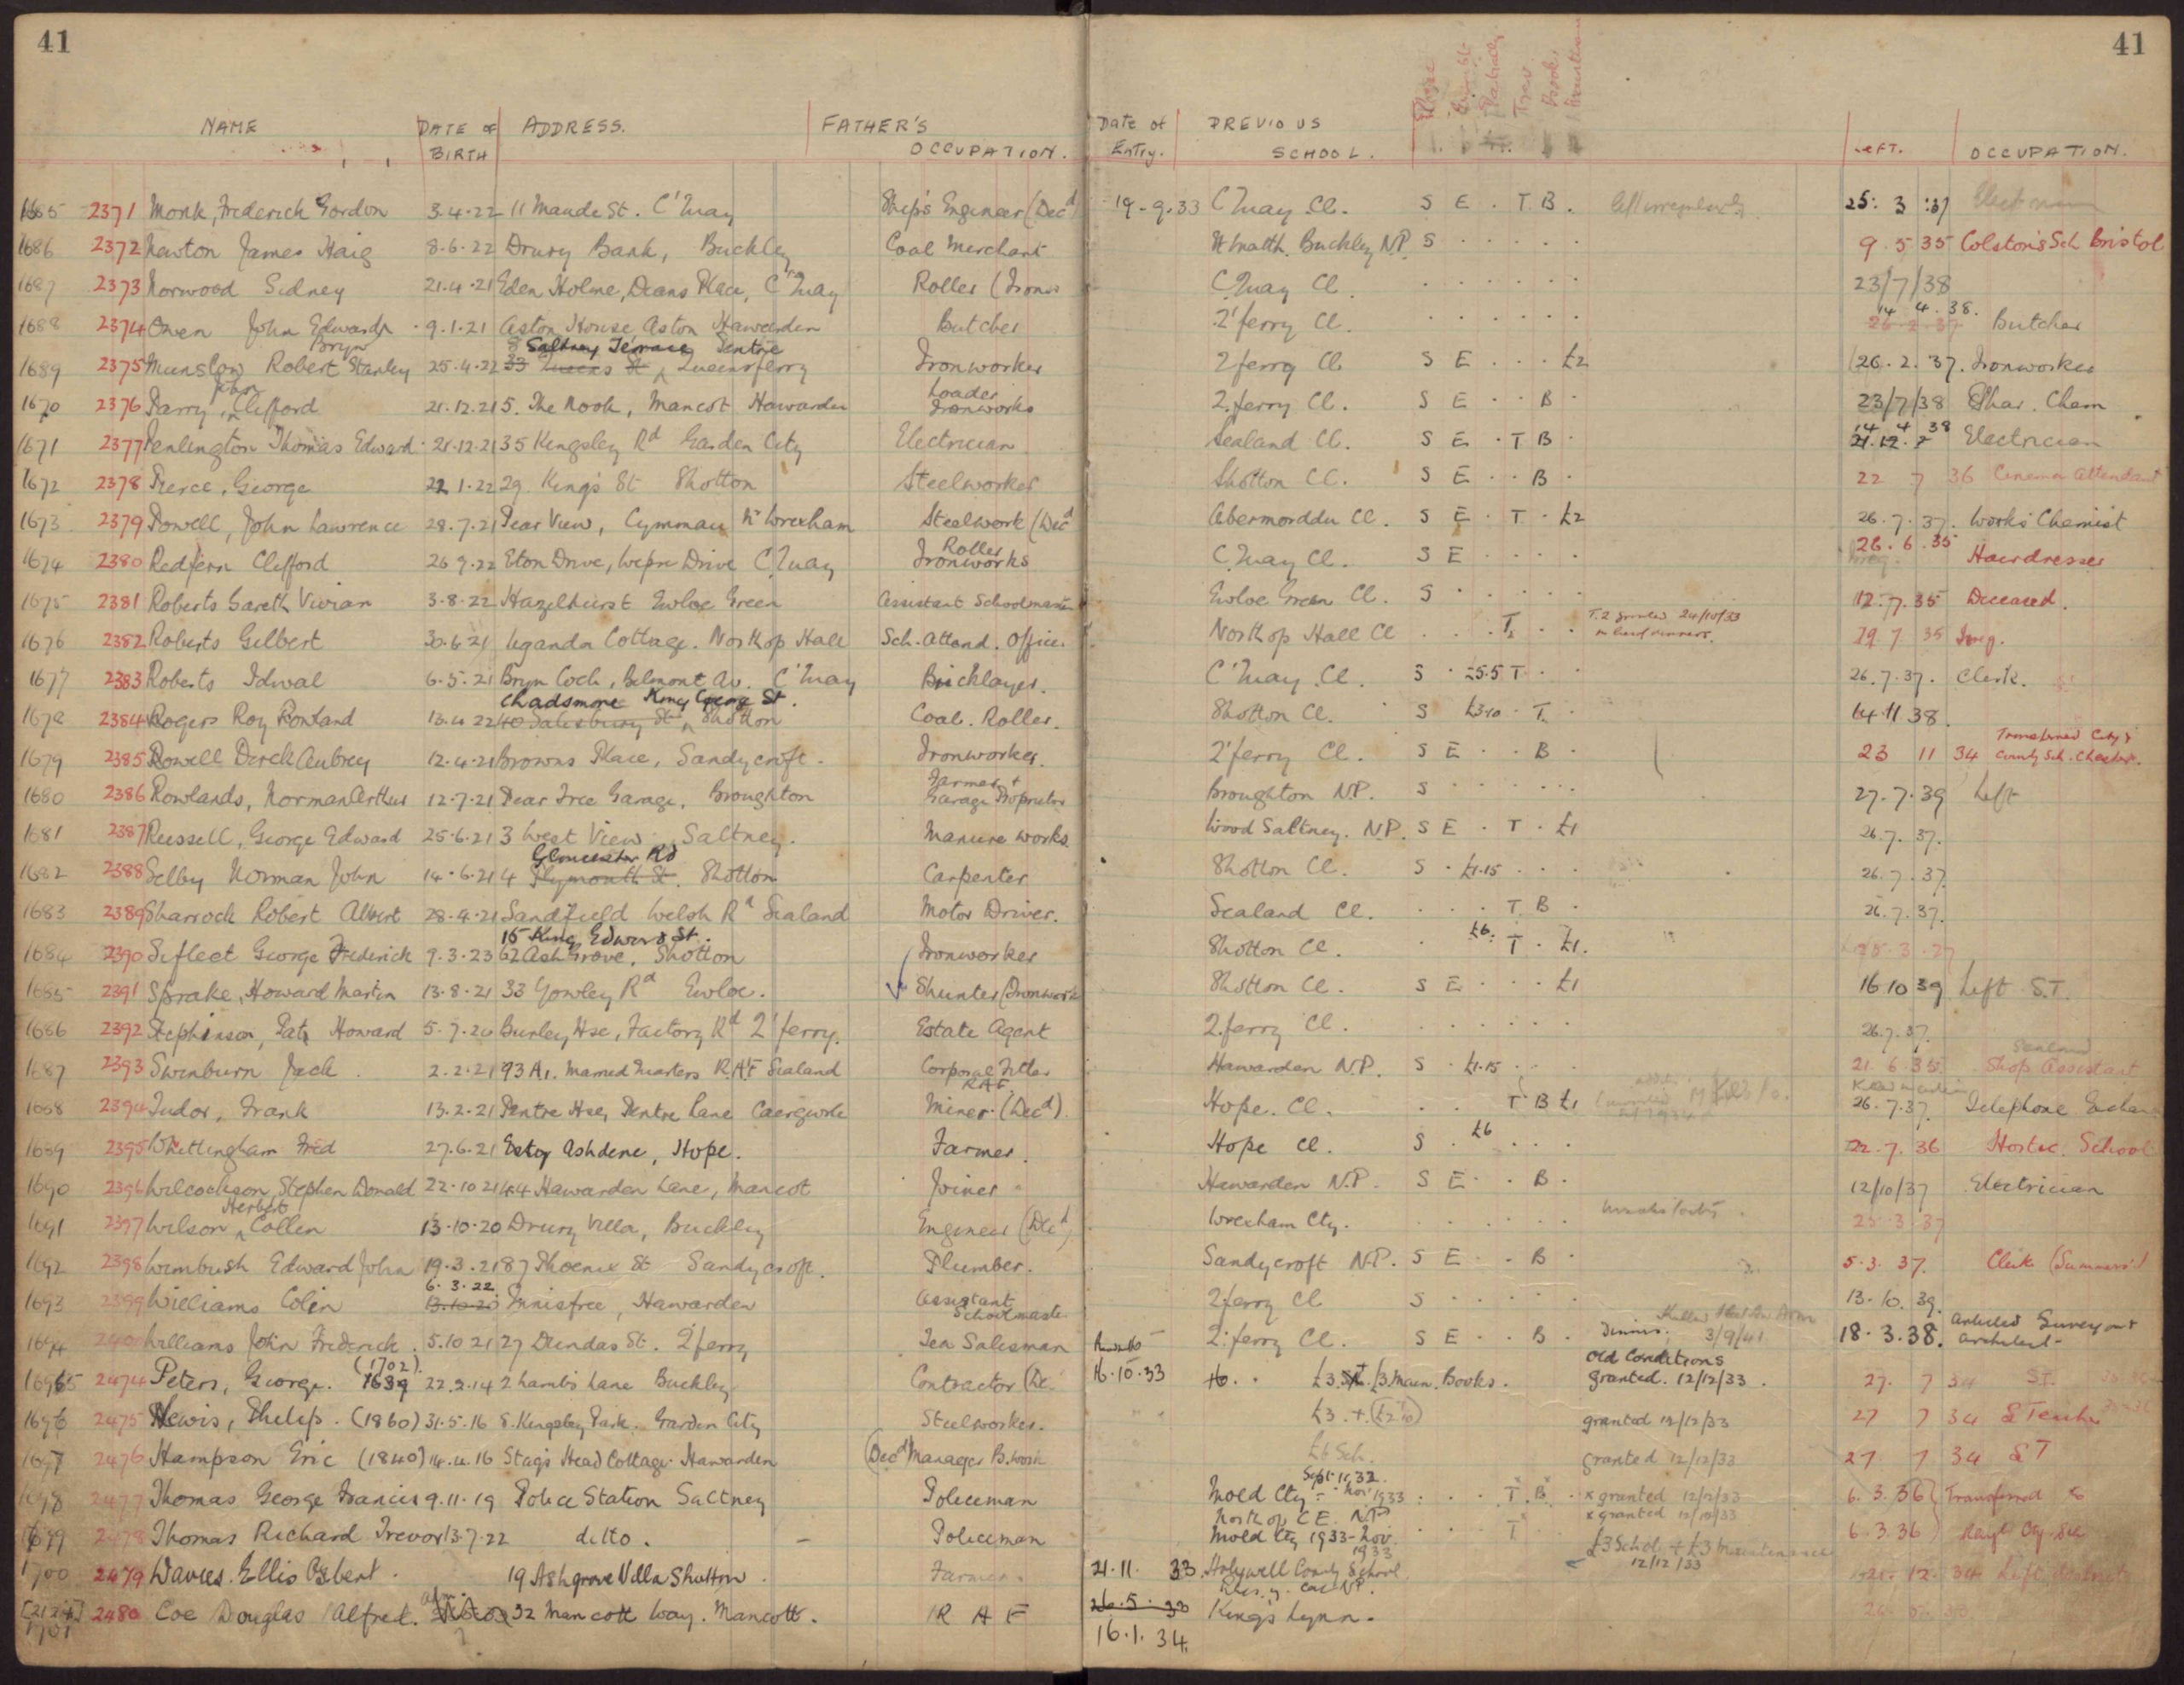 41
41
NAME DATE OF BIRTH ADDRESS. FATHER'S OCCUPATION. Date of Entry. PREVIOUS SCHOOL. LEFT. OCCUPATION.
1665 2371 Monk, Frederick Gordon 3.4.22 11 Maude St. C'Quay Ship's Engineer (Decd) 19.9.33 C'Quay Cl. S E . T B . left irregularly 25.3.37
1686 2372 Newton James Haig 8.6.22 Drury Bank, Buckley Coal Merchant St Matth. Buckley N.P. S . . . . . 9.5.35 Colston's Sch Bristol
1687 2373 Norwood Sidney 21.4.21 Eden Holme, Deans Place, C'Quay Roller (Irons C.Quay Cl. . . . . . . 23/7/38
1688 2374 Owen John Edward 9.1.21 Aston House, Aston Hawarden Butcher Q'ferry Cl. . . . . . . 14 4.38. Butcher
Bryn 8 Saltney Terrace Pentre
1689 2375 Munslow Robert Stanley 25.4.22 33 Queens St Queensferry Ironworker Q ferry Cl. S E . . . £2 (26.2.37. Ironworker
John Loader
1670 2376 Parry, Clifford 21.12.21 5. The Nook, Mancot Hawarden Ironworks Q.ferry Cl. S E . . B . 23/7/38 Phar. Chem
14 4 38
1671 2377 Penlington Thomas Edward 21.12.21 35 Kingsley Rd Garden City Electrician Sealand Cl. S E . T B . Electrician
1672 2378 Pierce, George 22 1.22 29 King's St Shotton Steelworker Shotton Cl. S E . . B . 22 7 36 Cinema Attendant
1673 2379 Powell, John Lawrence 28.7.21 Pear View, Cymmau Nr Wrexham Steelwork (Decd Abermorddu Cl. S E . T . £2 26.7.37. Works Chemist
Roller
1674 2380 Redfern Clifford 26 9.22 Eton Drive, Wepre Drive C.Quay Ironworks C.Quay Cl. S E . . . . 26.6.35 Hairdresser
1675 2381 Roberts Gareth Vivian 3.8.22 Hazelhurst Ewloe Green Assistant Schoolmaster Ewloe Green Cl. S . . . . . 12.7.35 Deceased.
1676 2382 Roberts Gilbert 30.6.21 Uganda Cottage. Northop Hall Sch. Attend. Office. Northop Hall Cl . . . T2 . . T.2 granted 24/10/33 29 7 35 Irreg.
1677 2383 Roberts Idwal 6.5.21 Bryn Coch, Belmont Av. C'Quay Bricklayer. C'Quay Cl. S . £5.5 T . . 26.7.37. Clerk.
Chadsmore King George St.
1678 2384 Rogers Roy Rowland 13.4 22 40 Salesbury St Shotton Coal. Roller. Shotton Cl. S £3.10 . T. . 14.11 38.
1679 2385 Rowell Derek Aubrey 12.4.21 Browns Place, Sandycroft. Ironworker. Q'ferry Cl. S E . . B . 23 11 34 Transferred City & County Sch. Chester.
Farmer +
1680 2386 Rowlands, Norman Arthur 12.7.21 Pear Tree Garage, Broughton Garage Proprietor Broughton N.P. S . . . . . 27.7.39 Left
1681 2387 Russell, George Edward 25.6.21 3 West View, Saltney. Manure works. Wood Saltney. N.P. S E . T . £1 26.7.37.
Gloucester Rd
1682 2388 Selby Norman John 14.6.21 4 Plymouth St. Shotton Carpenter Shotton Cl. S . £1.15 . . . 26.7.37.
1683 2389 Sharrock Robert Albert 28.4.21 Sandfield Welsh Rd Sealand Motor Driver. Sealand Cl. . . . T B . 26.7.37.
15 King Edward St.
1684 2390 Siflect George Frederick 9.3.23 62 Ash Grove. Shotton Ironworker Shotton Cl. . £6. T . £1.
1685 2391 Sprake, Howard Martin 13.8.21 33 Yowley Rd Ewloe. Shunter (Ironwork Shotton Cl. S E . . . £1 16 10 39 Left S.T.
1686 2392 Stephinson, Howard Burley Hse, Factory Rd Q'ferry. Estate Agent Q.ferry Cl. . . . . . . 26.7.37.
1687 2393 Swinburn Jack 2.2.21 93 A1. Married Quarters R.A.F Sealand Corporal Fitter R.A.F. Hawarden N.P. S . £1.15 . . . 21.6.35 Shop Assistant
1688 2394 Tudor, Frank 13.2.21 Pentre Hse, Pentre Lane Caergwrle Miner (Decd). Hope. Cl. . . . T B £1 26.7.37. Telephone
1689 2395 Whittingham Fred 27.6.21 Ashdene, Hope. Farmer. Hope Cl. S . £6 . . . 22.7.36 School
1690 2396 Wilcockson, Stephen Donald 22.10 21 44 Hawarden Lane, Mancot Joiner Hawarden N.P. S E . . B . 12/10/37 Electrician
Herbert
1691 2397 Wilson, Collen 13.10.20 Drury Villa, Buckley Engineer (Decd) Wrexham Cty. . . . . . . 25.3.37
1692 2398 Wimbush Edward John 19.3.21 87 Phoenix St Sandycroft. Plumber. Sandycroft N.P. S E . . B . 5.3.37. Clerk (Summers')
6.3.22
1693 2399 Williams Colin 13.10.20 Innisfree, Hawarden Assistant Schoolmaster Q.ferry Cl S . . . . . 13.10.39.
1694 2401 Williams John Frederick. 5.10 21 27 Dundas St. Q'ferry Tea Salesman Q.ferry Cl. S E . . B . Dinner. 3/9/41 18.3.38. Articled Surveyor + architect
(1702)
1695 2474 Peters, George. 1639 22.2.14 2 Lambs Lane Buckley Contractor (De. 16.10.33 £3 Main. Books. Old Conditions granted. 12/12/33. 27. 7 34 S.T.
1696 2475 Lewis, Philip. (1860) 31.5.16 8. Kingsley Park. Garden City Steelworker. £3 + (£2 10) granted 12/12/33 27 7 34 S Teacher
1697 2476 Hampson Eric (1840) 14.4.16 Stags Head Cottage. Hawarden (Decd Manager B.Work £6 Sch. granted 12/12/33 27 7 34 S T
Sept 11, 32.
1698 2477 Thomas George Francis 9.11.19 Police Station Saltney Policeman Mold Cty - Nov 1933 . . . T . B . x granted 12/12/33 6.3.36) Transferred to
Northop C.E. N.P. x granted 12/12/33
1699 2478 Thomas Richard Trevor 13.7.22 ditto. Policeman Mold Cty 1933-Nov 1933 T 6.3.36)
£3 Schol. + £3 Maintenance 12/12/33
1700 2479 Davies. Ellis Osbert. 19 Ashgrove Villa Shotton. Farmer. 21.11. 33. Holywell County School 21. 12. 34 Left
[2124] 1701 2480 Coe Douglas Alfred. 32 Mancott Way. Mancott. R A F 26.5.33 Kings Lynn.
16.1.34.